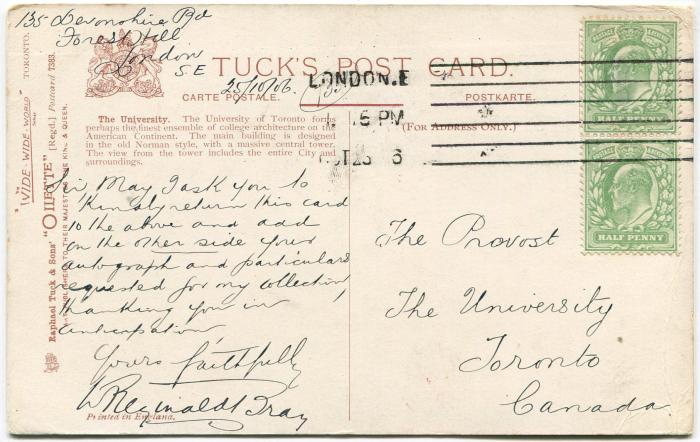 135 Devonshire Rd
Forest Hill
London
S E
25/10/06.
TUCK'S POST CARD.
CARTE POSTALE.
POSTKARTE.
(FOR ADDRESS ONLY.)
LONDON.E
15 PM
The University. The University of Toronto forms
perhaps the finest ensemble of college architecture on the
American Continent. The main building is designed
in the old Norman style, with a massive central tower.
The view from the tower includes the entire City and
surroundings.
Sir May I ask you to
kindly return this card
to the above and add
on the other side your
autograph and particulars
requested for my collection,
thanking you in
anticipation
Yours faithfully
W Reginald Bray
Printed in England.
The Provost
The University
Toronto
Canada
Raphael Tuck & Sons' "OILETTE" [Regd.] Postcard 7383.
ART PUBLISHERS TO THEIR MAJESTIES THE KING & QUEEN.
"WIDE-WIDE-WORLD"
TORONTO.
POSTAGE & REVENUE
HALF PENNY
POSTAGE & REVENUE
HALF PENNY